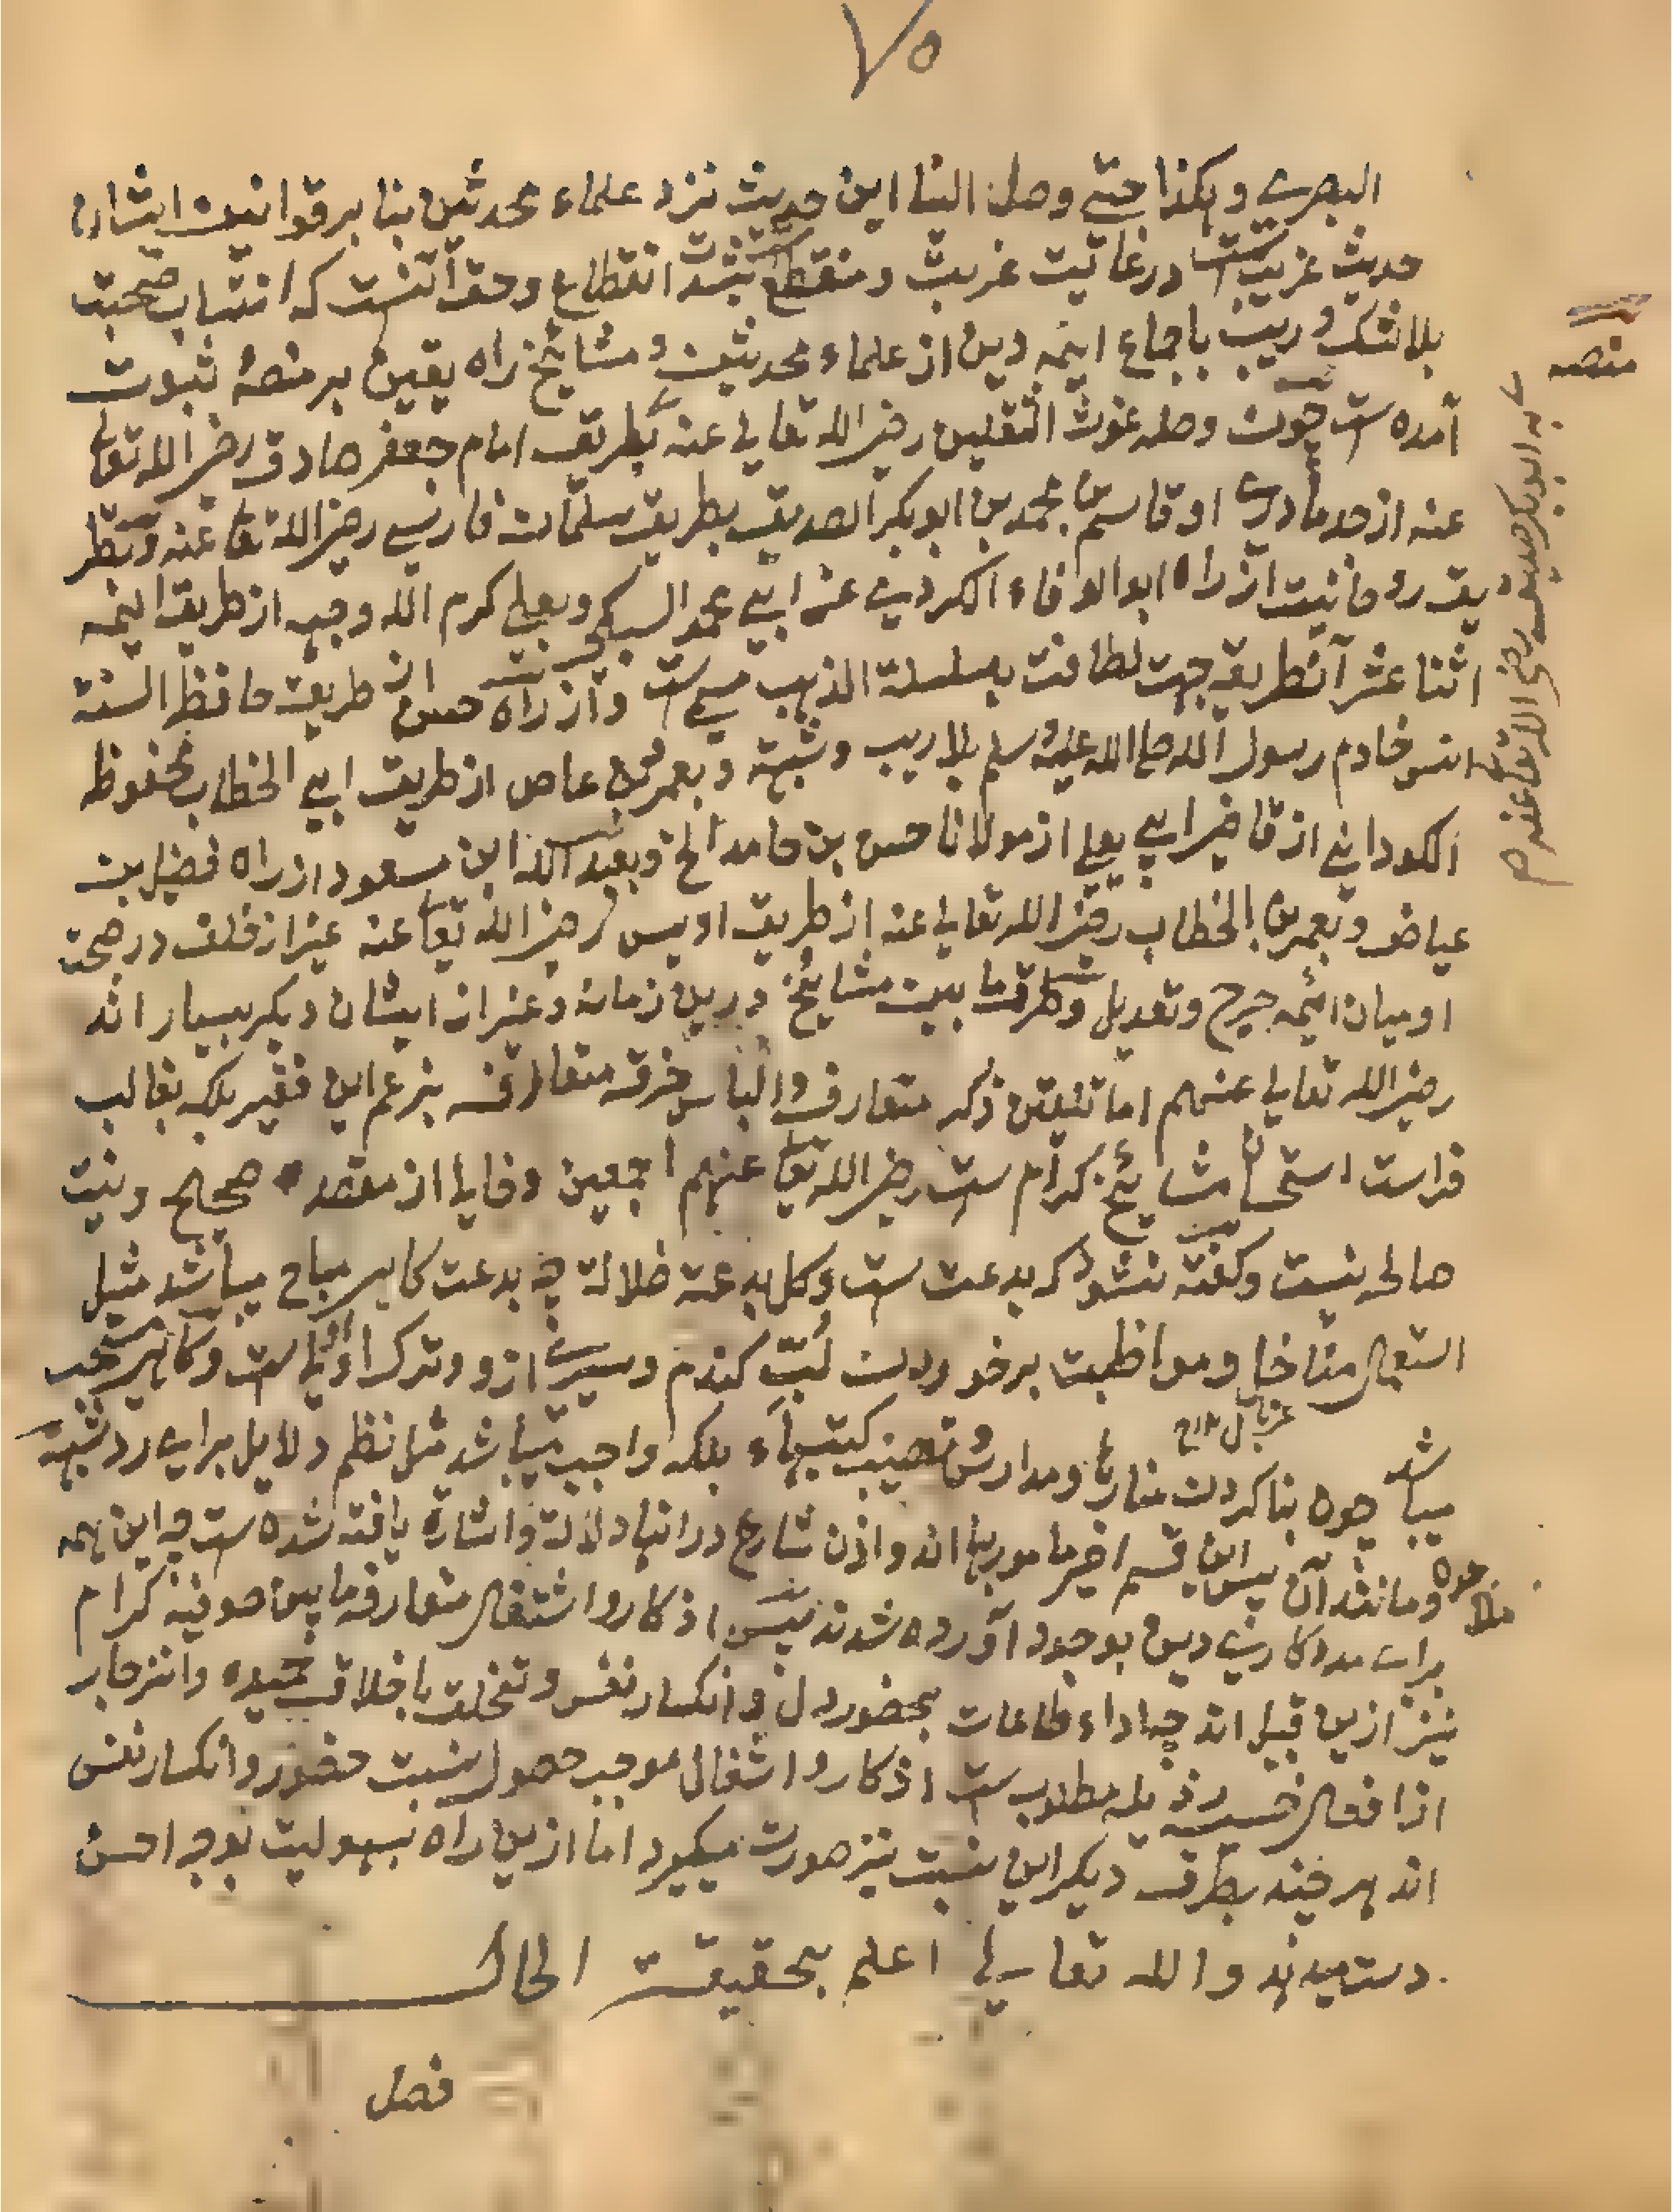 ۷۵
البصرے و ہکذا حتے وصل الینا این حدیث نزد علماء محدثین بنا بر قوانین ایشان
حدیث غریب ست در غایت غربت و منقطع بشدت انقطاع و حق آنست کہ انتساب صحبت
بلا شک و ریب باجماع ایمہ دین از علماء محدثین و مشایخ راہ یقین بر منصۂ ثبوت
منصہ
آمدہ ست چون وصلہ غوث الثقلین رضی اللہ تعالی عنہ بطریق امام جعفر صادق رضی اللہ تعالی
عنہ از جد مادرے او قاسم بن محمد بن ابو بکر الصدیق بطریق سلمان فارسے رضی اللہ تعا عنہ و بطر
بہ ابو بکر صدیق رضی اللہ تعا عنہم
یق روحانیت از راہ ابو الوفاء الکردے عن ابے محمد السبکے و بعلے کرم اللہ وجہہ از طریق ایمہ
اثنا عشر آنطریقہ جہت لطافت بسلسلۃ الذہب مسمے ست و از راہ حسن از طریق حافظ السنۃ
انس خادم رسول اللہ صلے اللہ علیہ وسلم بلا ریب و شبہہ و بعمر بن عاص از طریق ابے الخطاب محفوظ
الکودانے از قاضی ابے یعلے از مولانا حسن بن حامد الخ و بعبد اللہ ابن مسعود از راہ فضیل بن
عیاض و بعمر بن الخطاب رضی اللہ تعالی عنہ از طریق اویس رضی اللہ تعا عنہ غیر از خلف در صحت
او میان ائمہ جرح و تعدیل و طرق ما بین مشایخ درین زمانہ و غیر از ایشان دیگر بسیار اند
رضی اللہ تعالی عنہم اما تلقین ذکر متعارف و الباس خرقہ متعارفہ بزعم این فقیر بلکہ بغالب
فراست استحسان مشایخ کرام ست رضی اللہ تعا عنہم اجمعین و خالی از مقصد صحیح و نیت
صالحہ نیست و گفتہ نشود کہ بدعت ست و کل بدعۃ ضلالۃ چہ بدعت گاہے مباح میباشد مثل
استعمال مناخل و مواظبت برخوردن لُبّ گندم و سیرے ازو و ترک اولی ست و گاہے مستحب
میباشد چون بنا کردن منارہا و مدارس و تصنیف کتبہاء بلکہ واجب میباشد مثل نظم دلایل براے رد شبہہ
ملاحدہ و مانند آن پس این قسم اخیر مامور بہا اند و اذن شارع در انہا دلالۃ و اشارۃ یافتہ شدہ ست چہ این ہمہ
براے مددکارے دین بوجود آوردہ شدند پس اذکار و اشتغال متعارفہ ما بین صوفیہ کرام
نیز ازین قبیل اند چہ اداء طاعات بحضور دل و انکسار نفس و تخلق باخلاق حمیدہ و انزجار
از افعال خسیسہ رذیلہ مطلوب ست اذکار و اشغال موجب حصول نسبت حضور و انکسار نفس
اند ہر چند بطرق دیگر این نسبت نیز صورت میگیرد اما ازین راہ بسہولیت بوجہ احسن
دست میدہد واللہ تعالی اعلم بحقیقت الحال
فصل